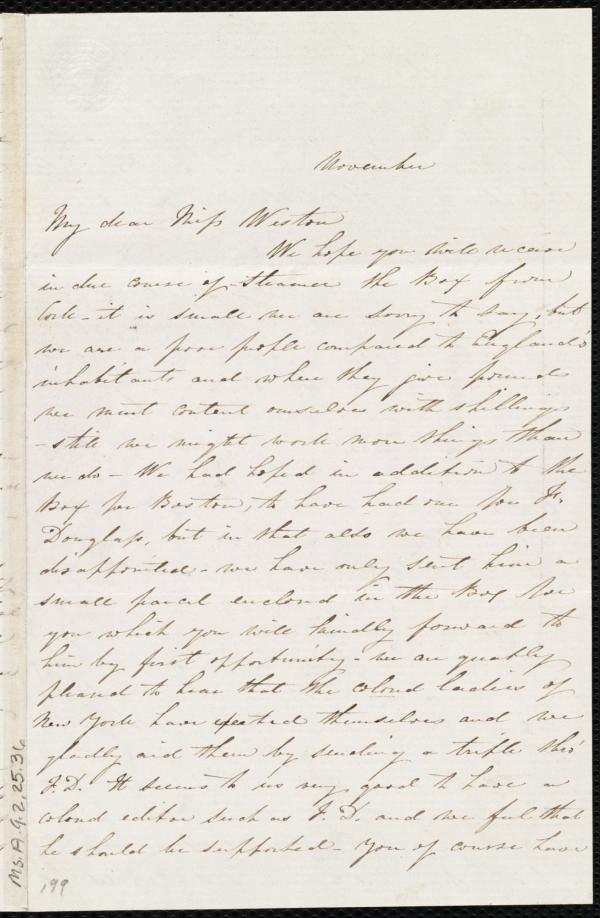 November
My dear Miss Weston
We hope you will receive
in due course of Steamer the Box from
Cork - it is small we are sorry to say, but
we are a poor people compared to England's
inhabitants and where they give pounds
we must content ourselves with shillings
- still we might work more things than
we do - We had hoped in addition to the
Box for Boston, to have had one for F.
Douglass, but in that also we have been
disappointed - we have only sent him a
small parcel enclosed in the Box for
you which you will kindly forward to
him by first opportunity - we are greatly
pleased to hear that the colored ladies of
New York have exerted themselves and we
gladly aid them by sending a trifle thro'
F.D. It seems to us very good to have a
colored editor such as F.D. and we feel that
he should be supported - You of course have
Ms. A. 9. 2. 25. 36
199